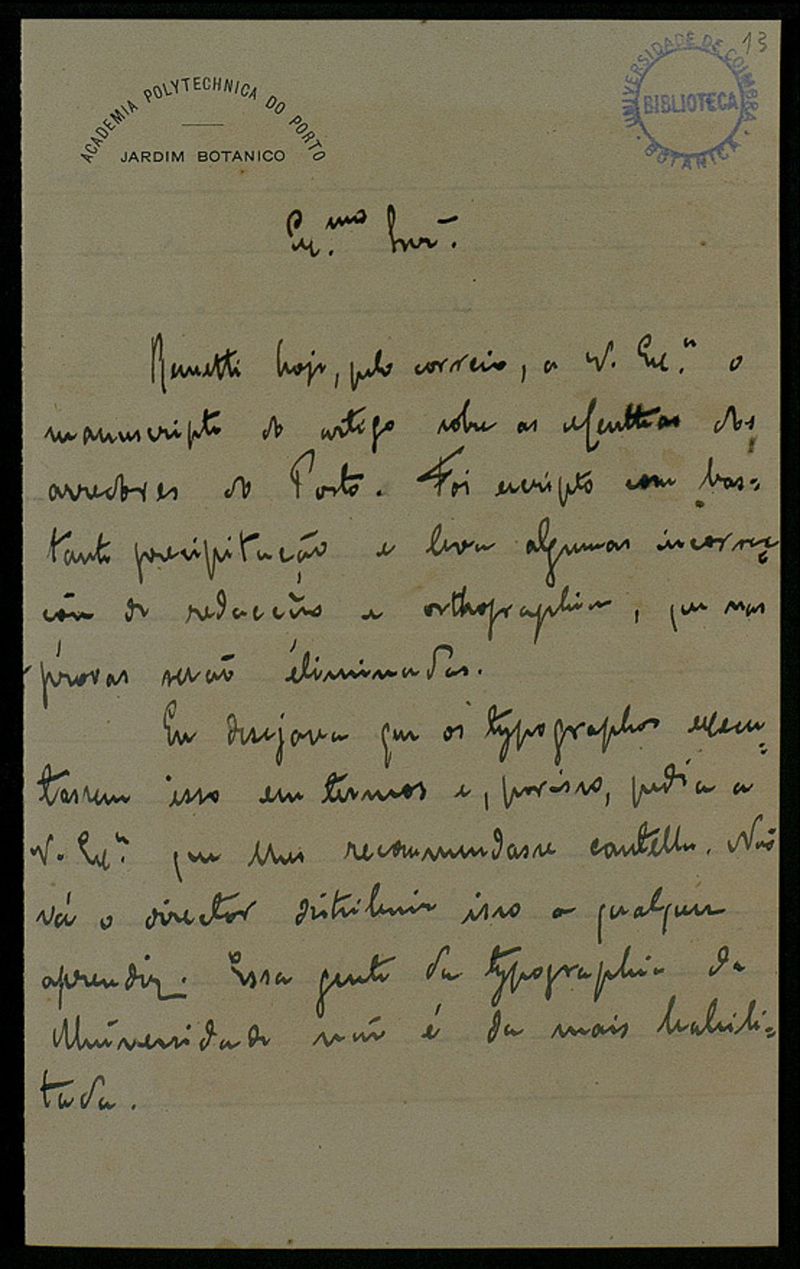 13
UNIVERSIDADE DE COIMBRA
BIBLIOTECA
BOTANICA
ACADEMIA POLYTECHNICA DO PORTO
JARDIM BOTANICO
Ex.mo Snr.
Remetti hoje, pelo correio, a V. Ex.a o
manuscripto do artigo sobre as dos
arredores do Porto. Foi escripto com bas-
tante precipitação e leva algumas incorrec-
ções de redacção e orthographia, que nas
provas serão eliminadas.
Eu desejava que os typographos execu-
tassem isso em termos e, por isso, pedia a
V. Ex.a que lhes recommendasse cautella. Não
vá o director distribuir isso a qualquer
aprendiz. Essa gente da typographia da
Universidade não é da mais habili-
tada.